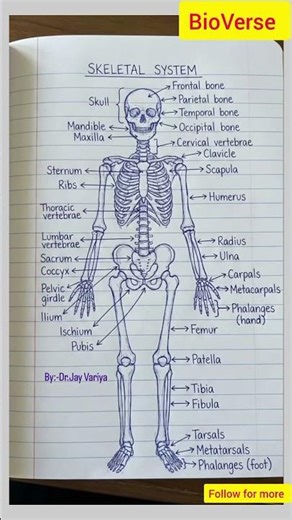 BioVerse
SKELETAL SYSTEM
Frontal bone
Skull
Parietal bone
Temporal bone
Mandible
Occipital bone
Maxilla
Cervical vertebrae
Clavicle
Sternum
Scapula
Ribs
Humerus
Thoracic
vertebrae
Lumbar
vertebrae
Radius
Sacrum
Ulna
Coccyx
Carpals
Pelvic
girdle
Metacarpals
Phalanges
(hand)
Ilium
Ischium
Femur
Pubis
Patella
By:-Dr.Jay Variya
Tibia
Fibula
Tarsals
Metatarsals
Phalanges (foot)
Follow for more